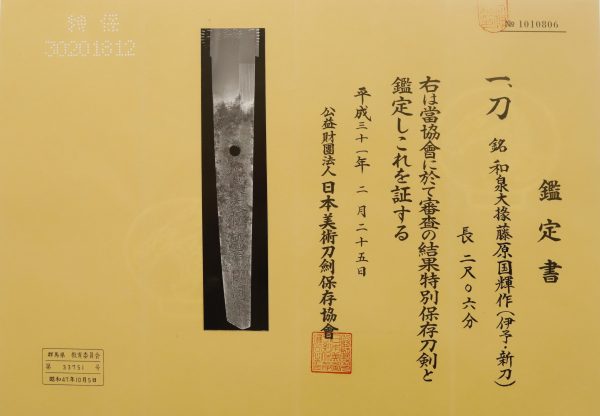 鑑定書
一、刀 銘 和泉大掾藤原国輝作(伊予・新刀)
長 二尺〇六分
右は當協會に於て審査の結果特別保存刀剣と
鑑定しこれを証する
平成三十一年 二月二十五日
公益財團法人 日本美術刀劍保存協會
№ 1010806
特保
30201812
群馬県 教育委員会
第 33751 号
昭和47年10月5日